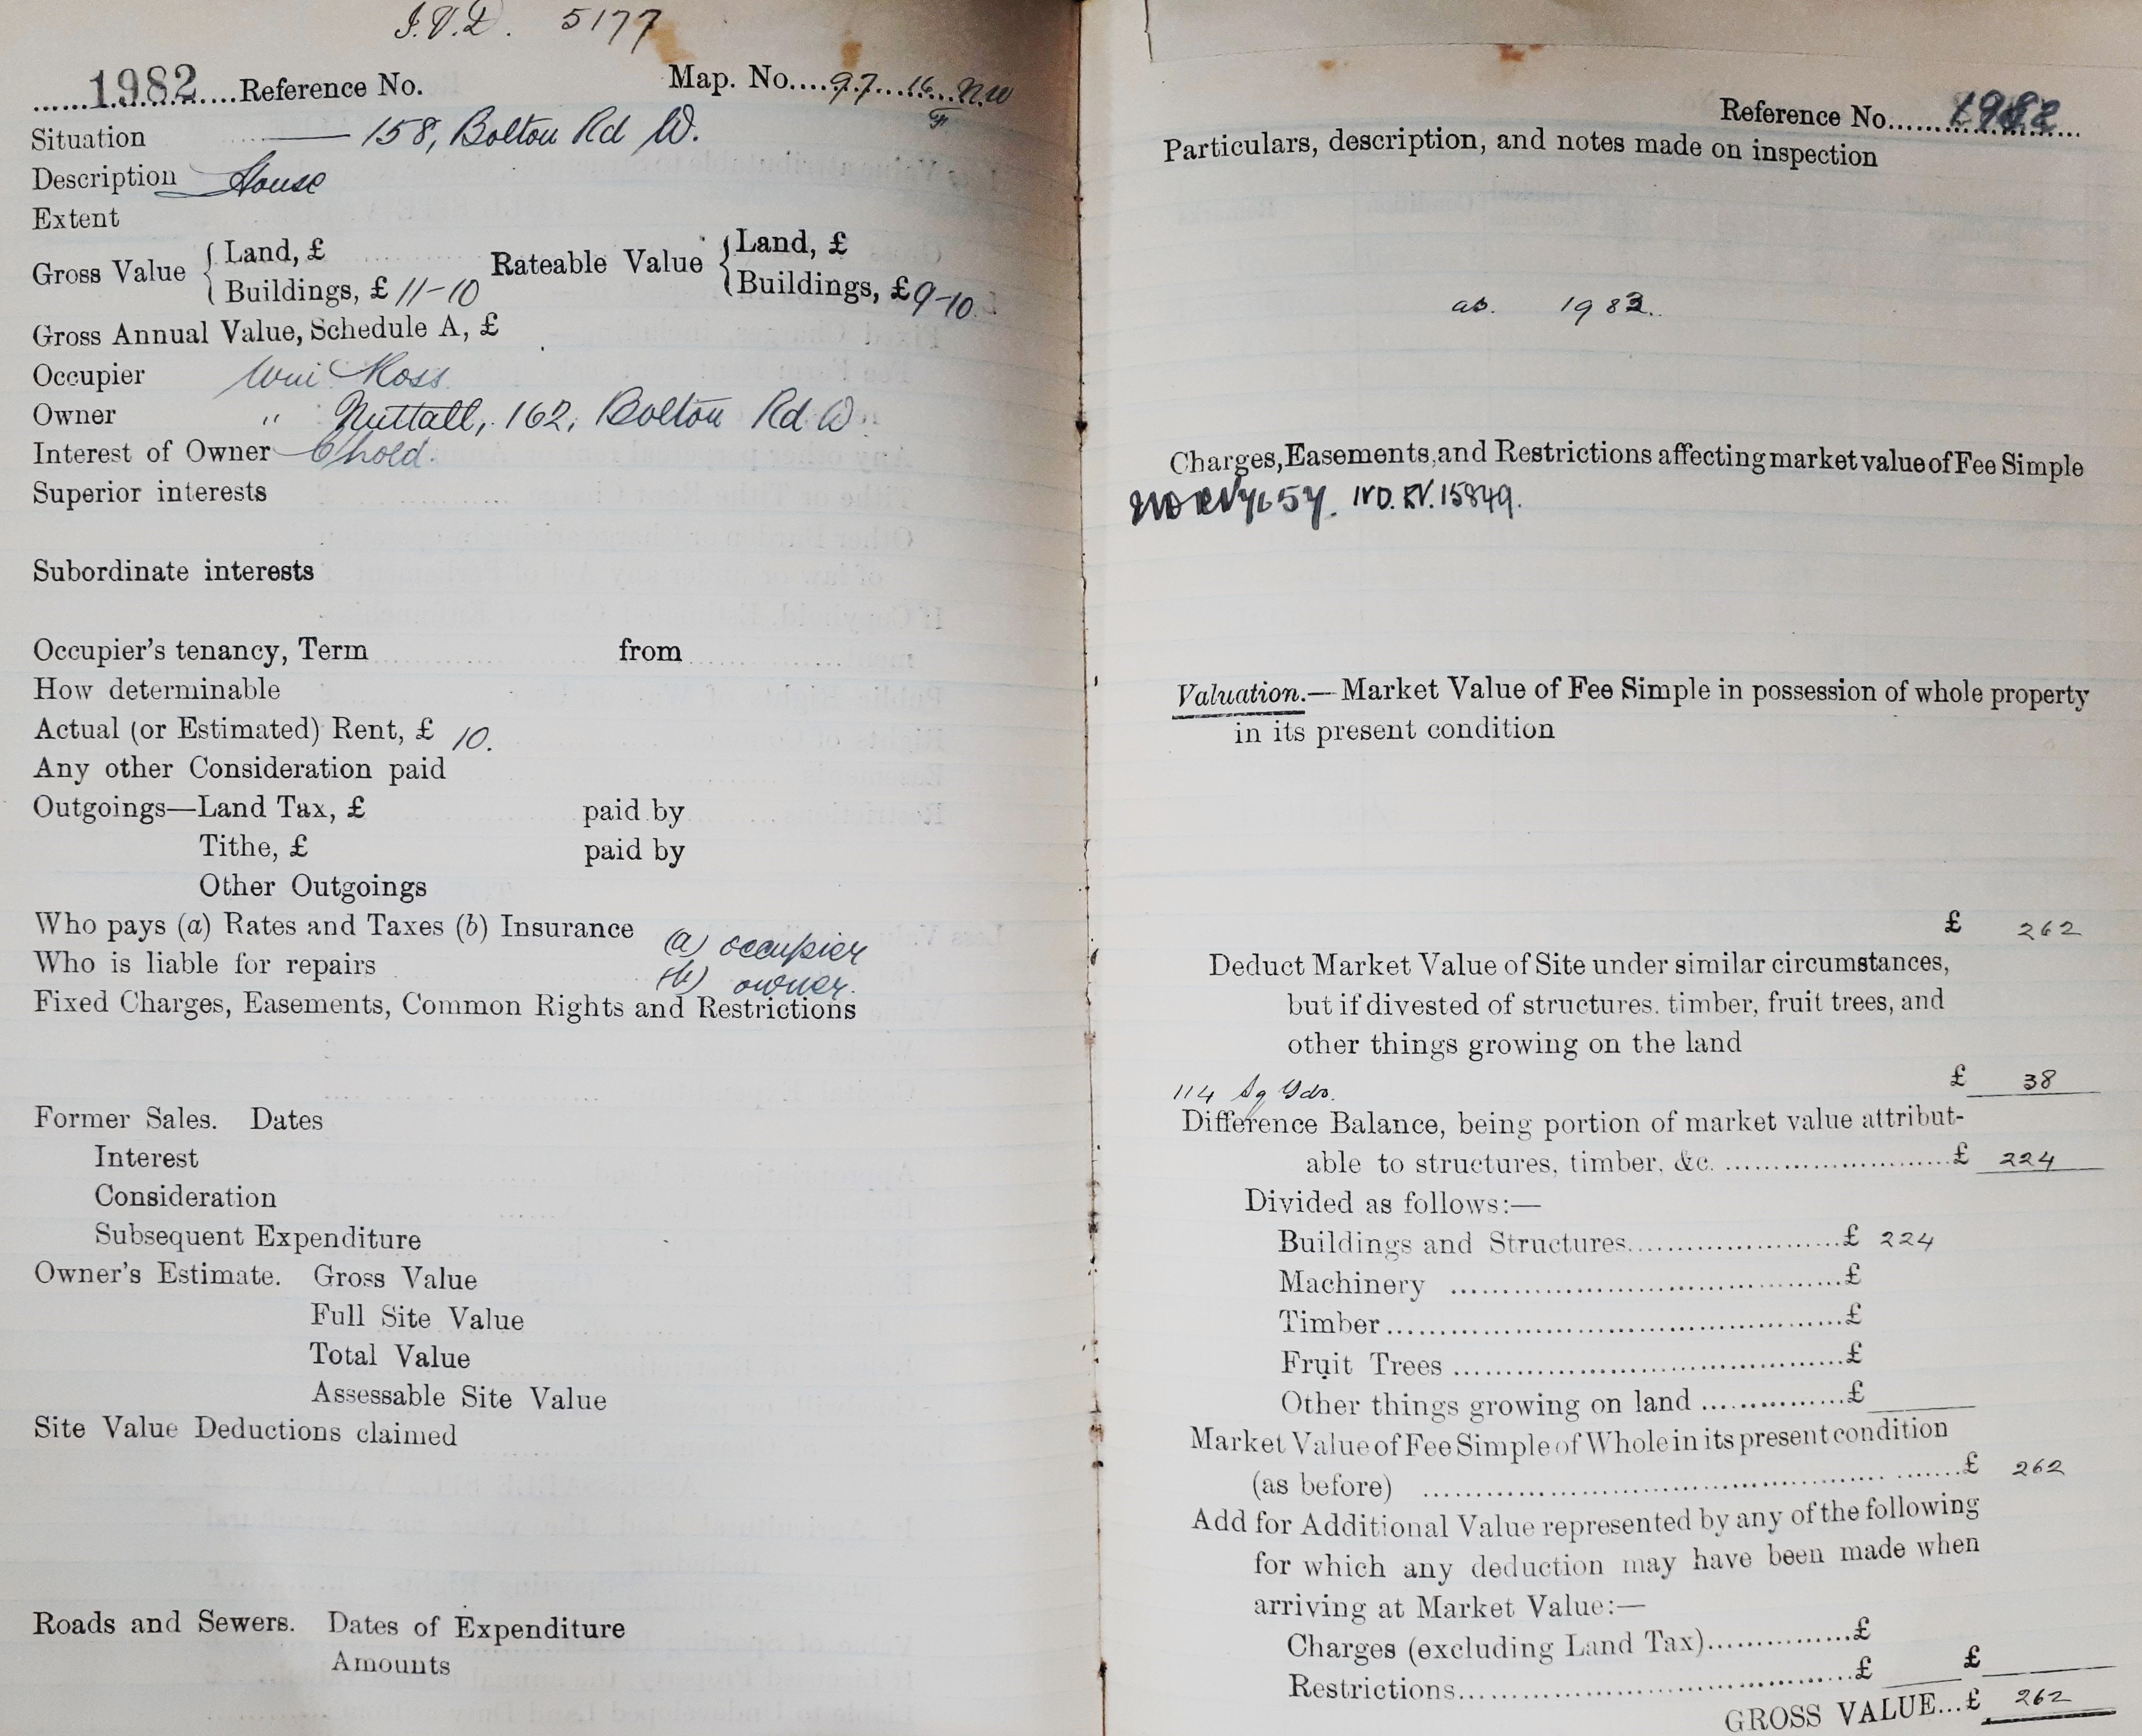 I.V.D. 5177
......1982......Reference No. Map. No....97...16...N.W
F
Situation 158, Bolton Rd W.
Description House
Extent
Gross Value { Land, £ Rateable Value { Land, £
Buildings, £ 11-10 Buildings, £ 9-10
Gross Annual Value, Schedule A, £
Occupier Wm Moss
Owner " Nuttall, 162, Bolton Rd W.
Interest of Owner hold.
Superior interests
Subordinate interests
Occupier's tenancy, Term from
How determinable
Actual (or Estimated) Rent, £ 10.
Any other Consideration paid
Outgoings—Land Tax, £ paid by
Tithe, £ paid by
Other Outgoings
Who pays (a) Rates and Taxes (b) Insurance (a) occupier
Who is liable for repairs (b) owner.
Fixed Charges, Easements, Common Rights and Restrictions
Former Sales. Dates
Interest
Consideration
Subsequent Expenditure
Owner's Estimate. Gross Value
Full Site Value
Total Value
Assessable Site Value
Site Value Deductions claimed
Roads and Sewers. Dates of Expenditure
Amounts
Reference No......1982...
Particulars, description, and notes made on inspection
as. 1983.
Charges, Easements, and Restrictions affecting market value of Fee Simple
IVD. RV. 15849.
Valuation.— Market Value of Fee Simple in possession of whole property
in its present condition
£ 262
Deduct Market Value of Site under similar circumstances,
but if divested of structures, timber, fruit trees, and
other things growing on the land
£ 38
114 Sq Yds.
Difference Balance, being portion of market value attribut-
able to structures, timber, &c. ........................£ 224
Divided as follows:—
Buildings and Structures........................£ 224
Machinery ........................£
Timber........................£
Fruit Trees ........................£
Other things growing on land ................£
Market Value of Fee Simple of Whole in its present condition
(as before) ........................£ 262
Add for Additional Value represented by any of the following
for which any deduction may have been made when
arriving at Market Value:—
Charges (excluding Land Tax)................£
Restrictions........................£ £
GROSS VALUE...£ 262